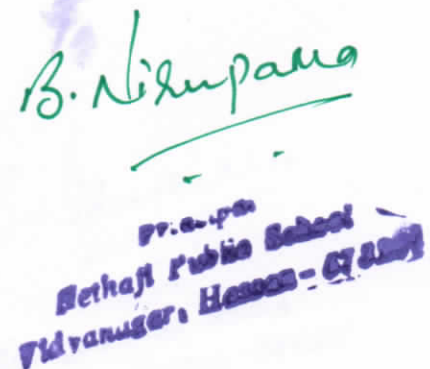 B. Nirupama
Principal
Nethaji Public School
Vidyanagar, Hassan -